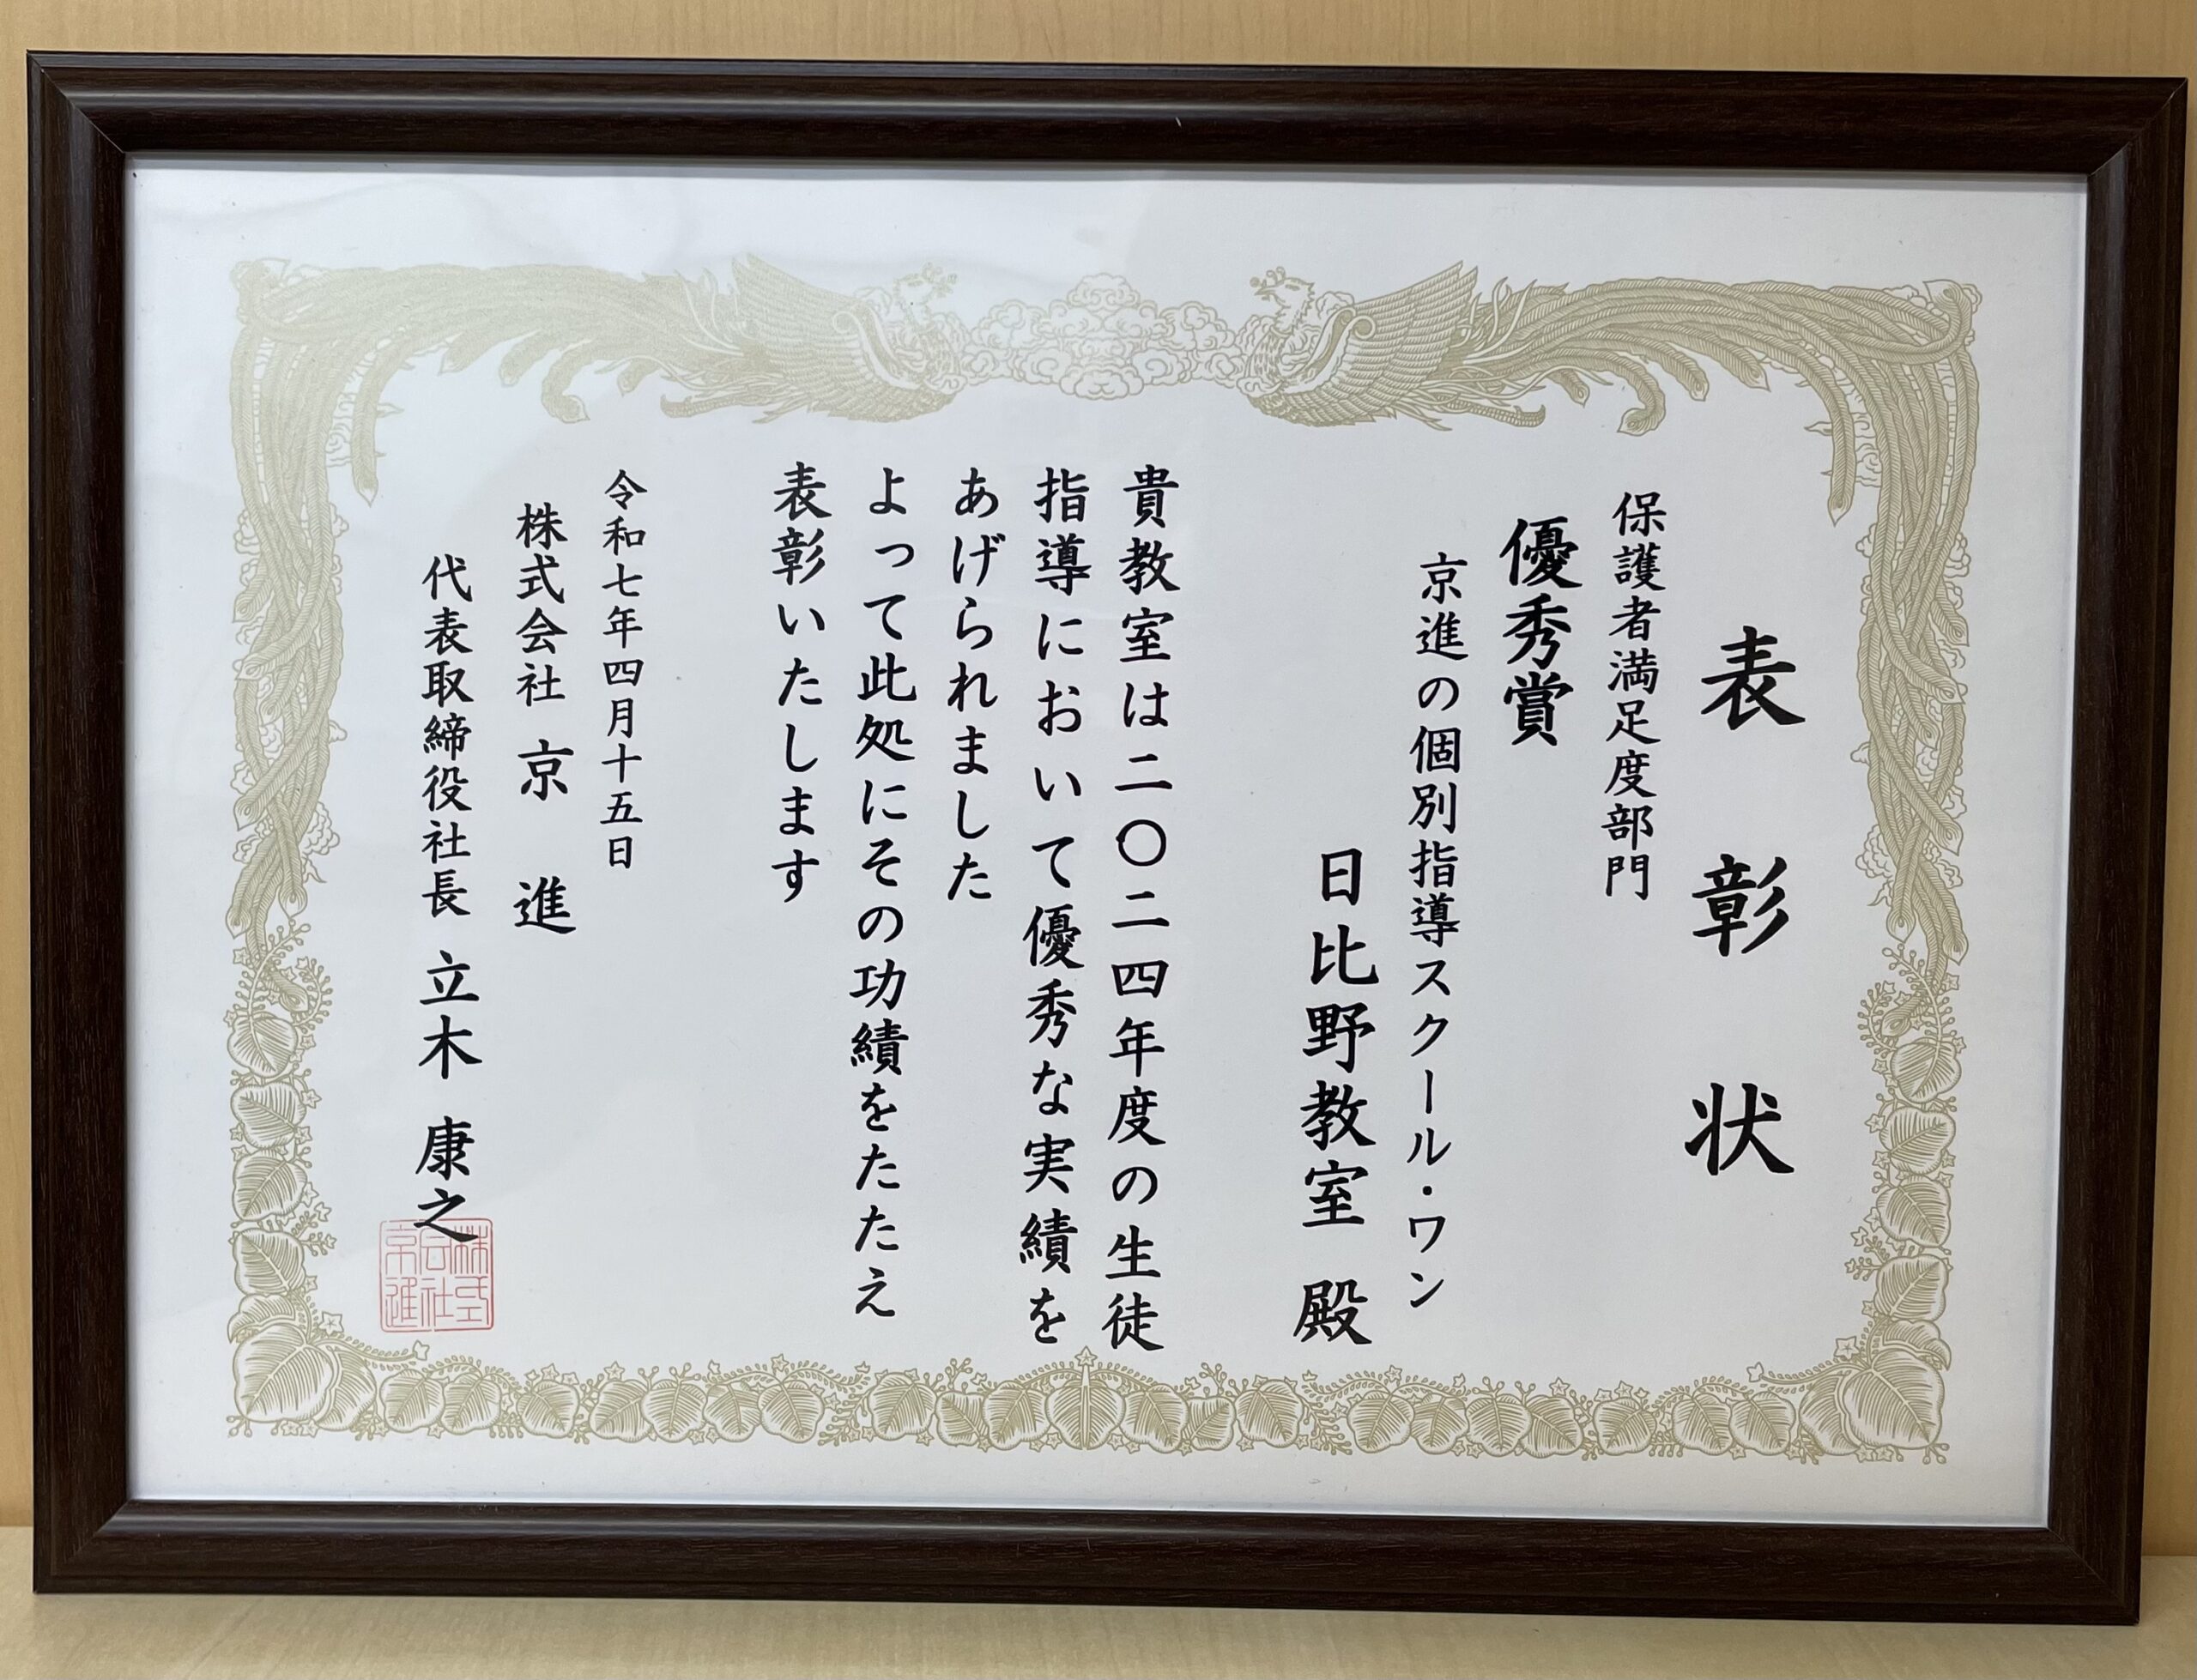 表彰状
保護者満足度部門
優秀賞
京進の個別指導スクール・ワン
日比野教室 殿
貴教室は二〇二四年度の生徒
指導において優秀な実績を
あげられました
よって此処にその功績をたたえ
表彰いたします
令和七年四月十五日
株式会社 京進
代表取締役社長 立木 康之
株式
会社
京進